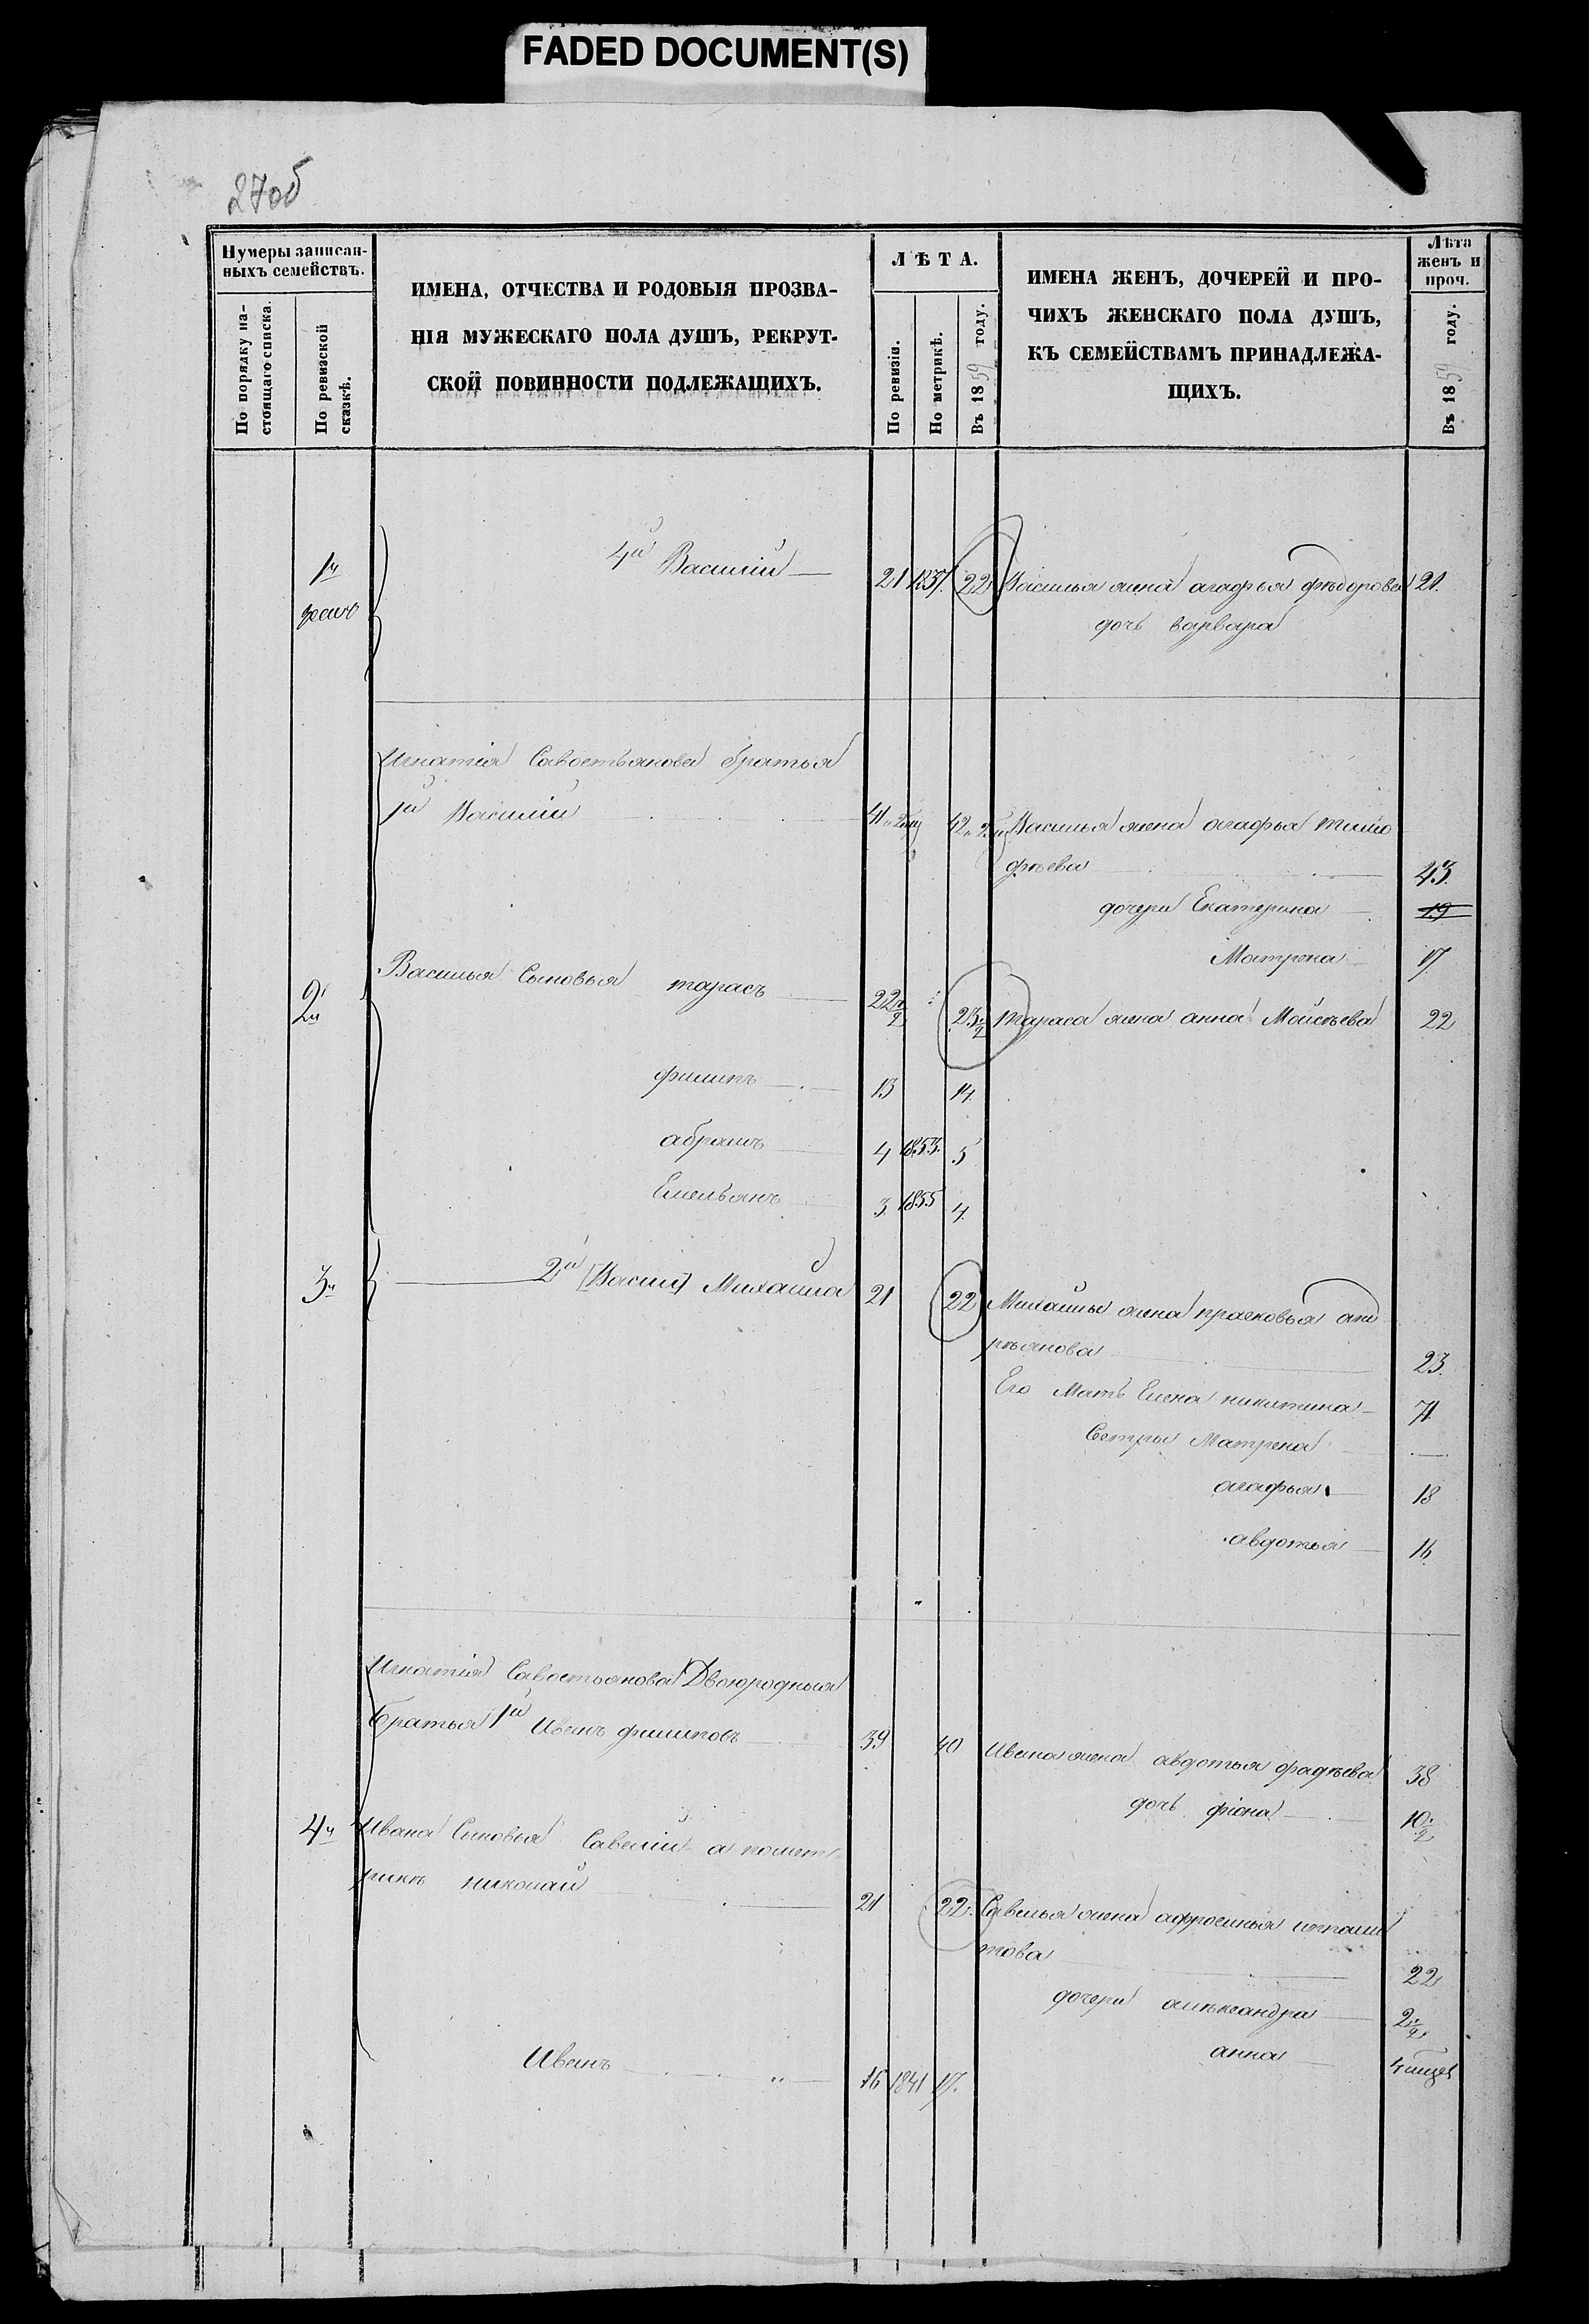 FADED DOCUMENT(S)
27об
Нумеры записан-
ныхъ семействъ.
По порядку на-
стоящаго списка.
По ревизской
сказкѣ.
ИМЕНА, ОТЧЕСТВА И РОДОВЫЯ ПРОЗВА-
НІЯ МУЖЕСКАГО ПОЛА ДУШЪ, РЕКРУТ-
СКОЙ ПОВИННОСТИ ПОДЛЕЖАЩИХЪ.
ЛѢТА.
По ревизіи.
По метрикѣ.
Въ 1859 году.
ИМЕНА ЖЕНЪ, ДОЧЕРЕЙ И ПРО-
ЧИХЪ ЖЕНСКАГО ПОЛА ДУШЪ,
КЪ СЕМЕЙСТВАМЪ ПРИНАДЛЕЖА-
ЩИХЪ.
Лѣта
женъ и
проч.
Въ 1859 году.
1й 4й Василій 21 1837. 22 Василья жена агафья фѣдорова 21.
дочь варвара
Игнатія Савостьянова братья
1й Василій 41 42 Василья жена агафья тимо
фѣева 43.
дочери Екатерина 19
Матрена 17
2й Василья Сыновья тарасъ 22 1/2 23 1/2 тараса жена анна Моисѣева 22
филипъ 13 14.
абрамъ 4 1853. 5
Емельянъ 3 1855 4.
3й 2й [Васил] Михаила 21 22 Михайлы жена прасковья анд
рѣянова 23.
Его Мать Елена никитина 71.
Сестры Матрена
агафья 18
авдотья 16
Игнатія Савостьянова Двоюродныя
братья 1й Иванъ филиповъ 39 40 Ивана жена авдотья фадѣева 38
дочь фіона 10 1/2
4й Ивана Сыновья Савелій а помет
рикѣ николай 21 22. Савелья жена афросинья ипполи
това 22
дочери алѣксандра 2 1/2
анна
Иванъ 16 1841 17.